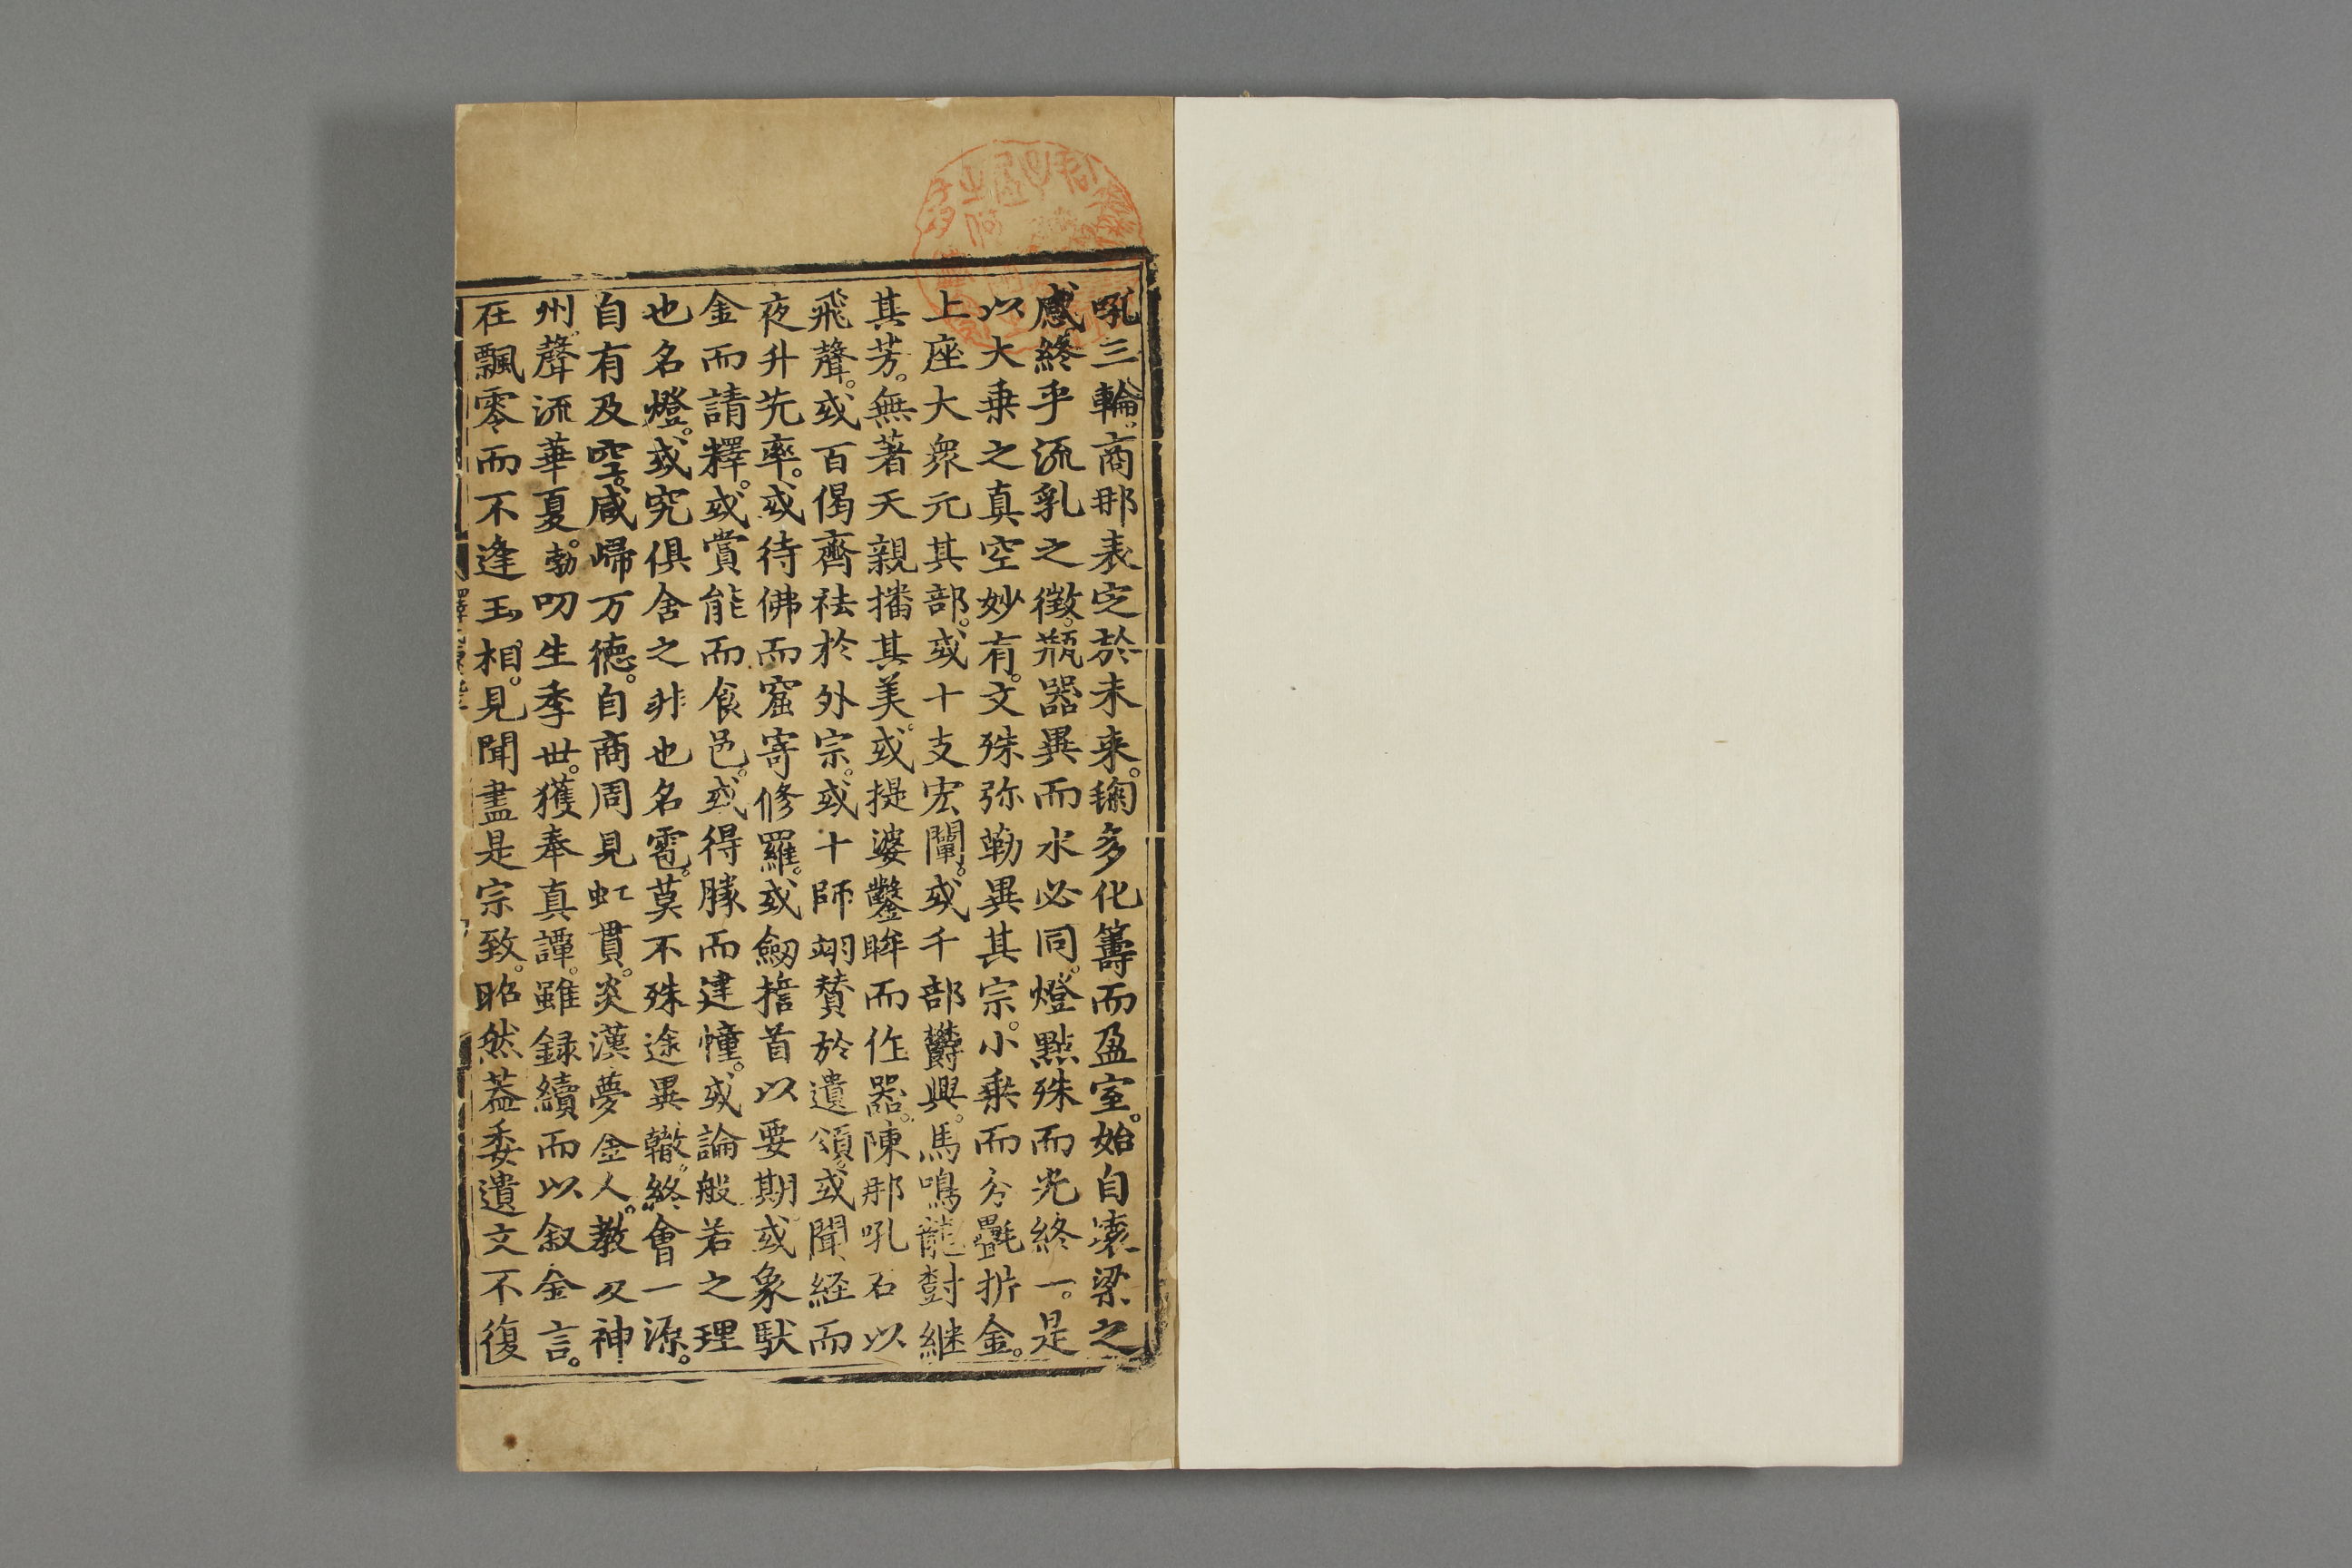 吼三輪。商那表定於未来。毱多化籌而盈室。始自壊梁之
感終乎流乳之徴。瓶器異而水必同。燈點殊而光終一。是
以大乗之真空妙有。文殊弥勒異其宗。小乗而分㲲折金。
上座大衆元其部。或十支宏闡。或千部欝興。馬鳴龍樹継
其芳。無著天親播其美。或提婆鑿眸而作器。陳那吼石以
飛聲。或百偈齊祛於外宗。或十師翊賛於遺頌。或聞経而
夜升兜率。或待佛而窟寄修羅。或劔擔首以要期。或象馱
金而請釋。或賞能而食邑。或得勝而建幢。或論般若之理
也名燈。或究俱舍之非也名雹。莫不殊途異轍。終會一源。
自有及空。咸歸万徳。自商周見虹貫。炎漢夢金人。教及神
州。聲流華夏。勃叨生季世。獲奉真譚。雖録續而以叙金言。
在飄零而不逢玉相。見聞盡是宗致。昭然蓋委遺文不復